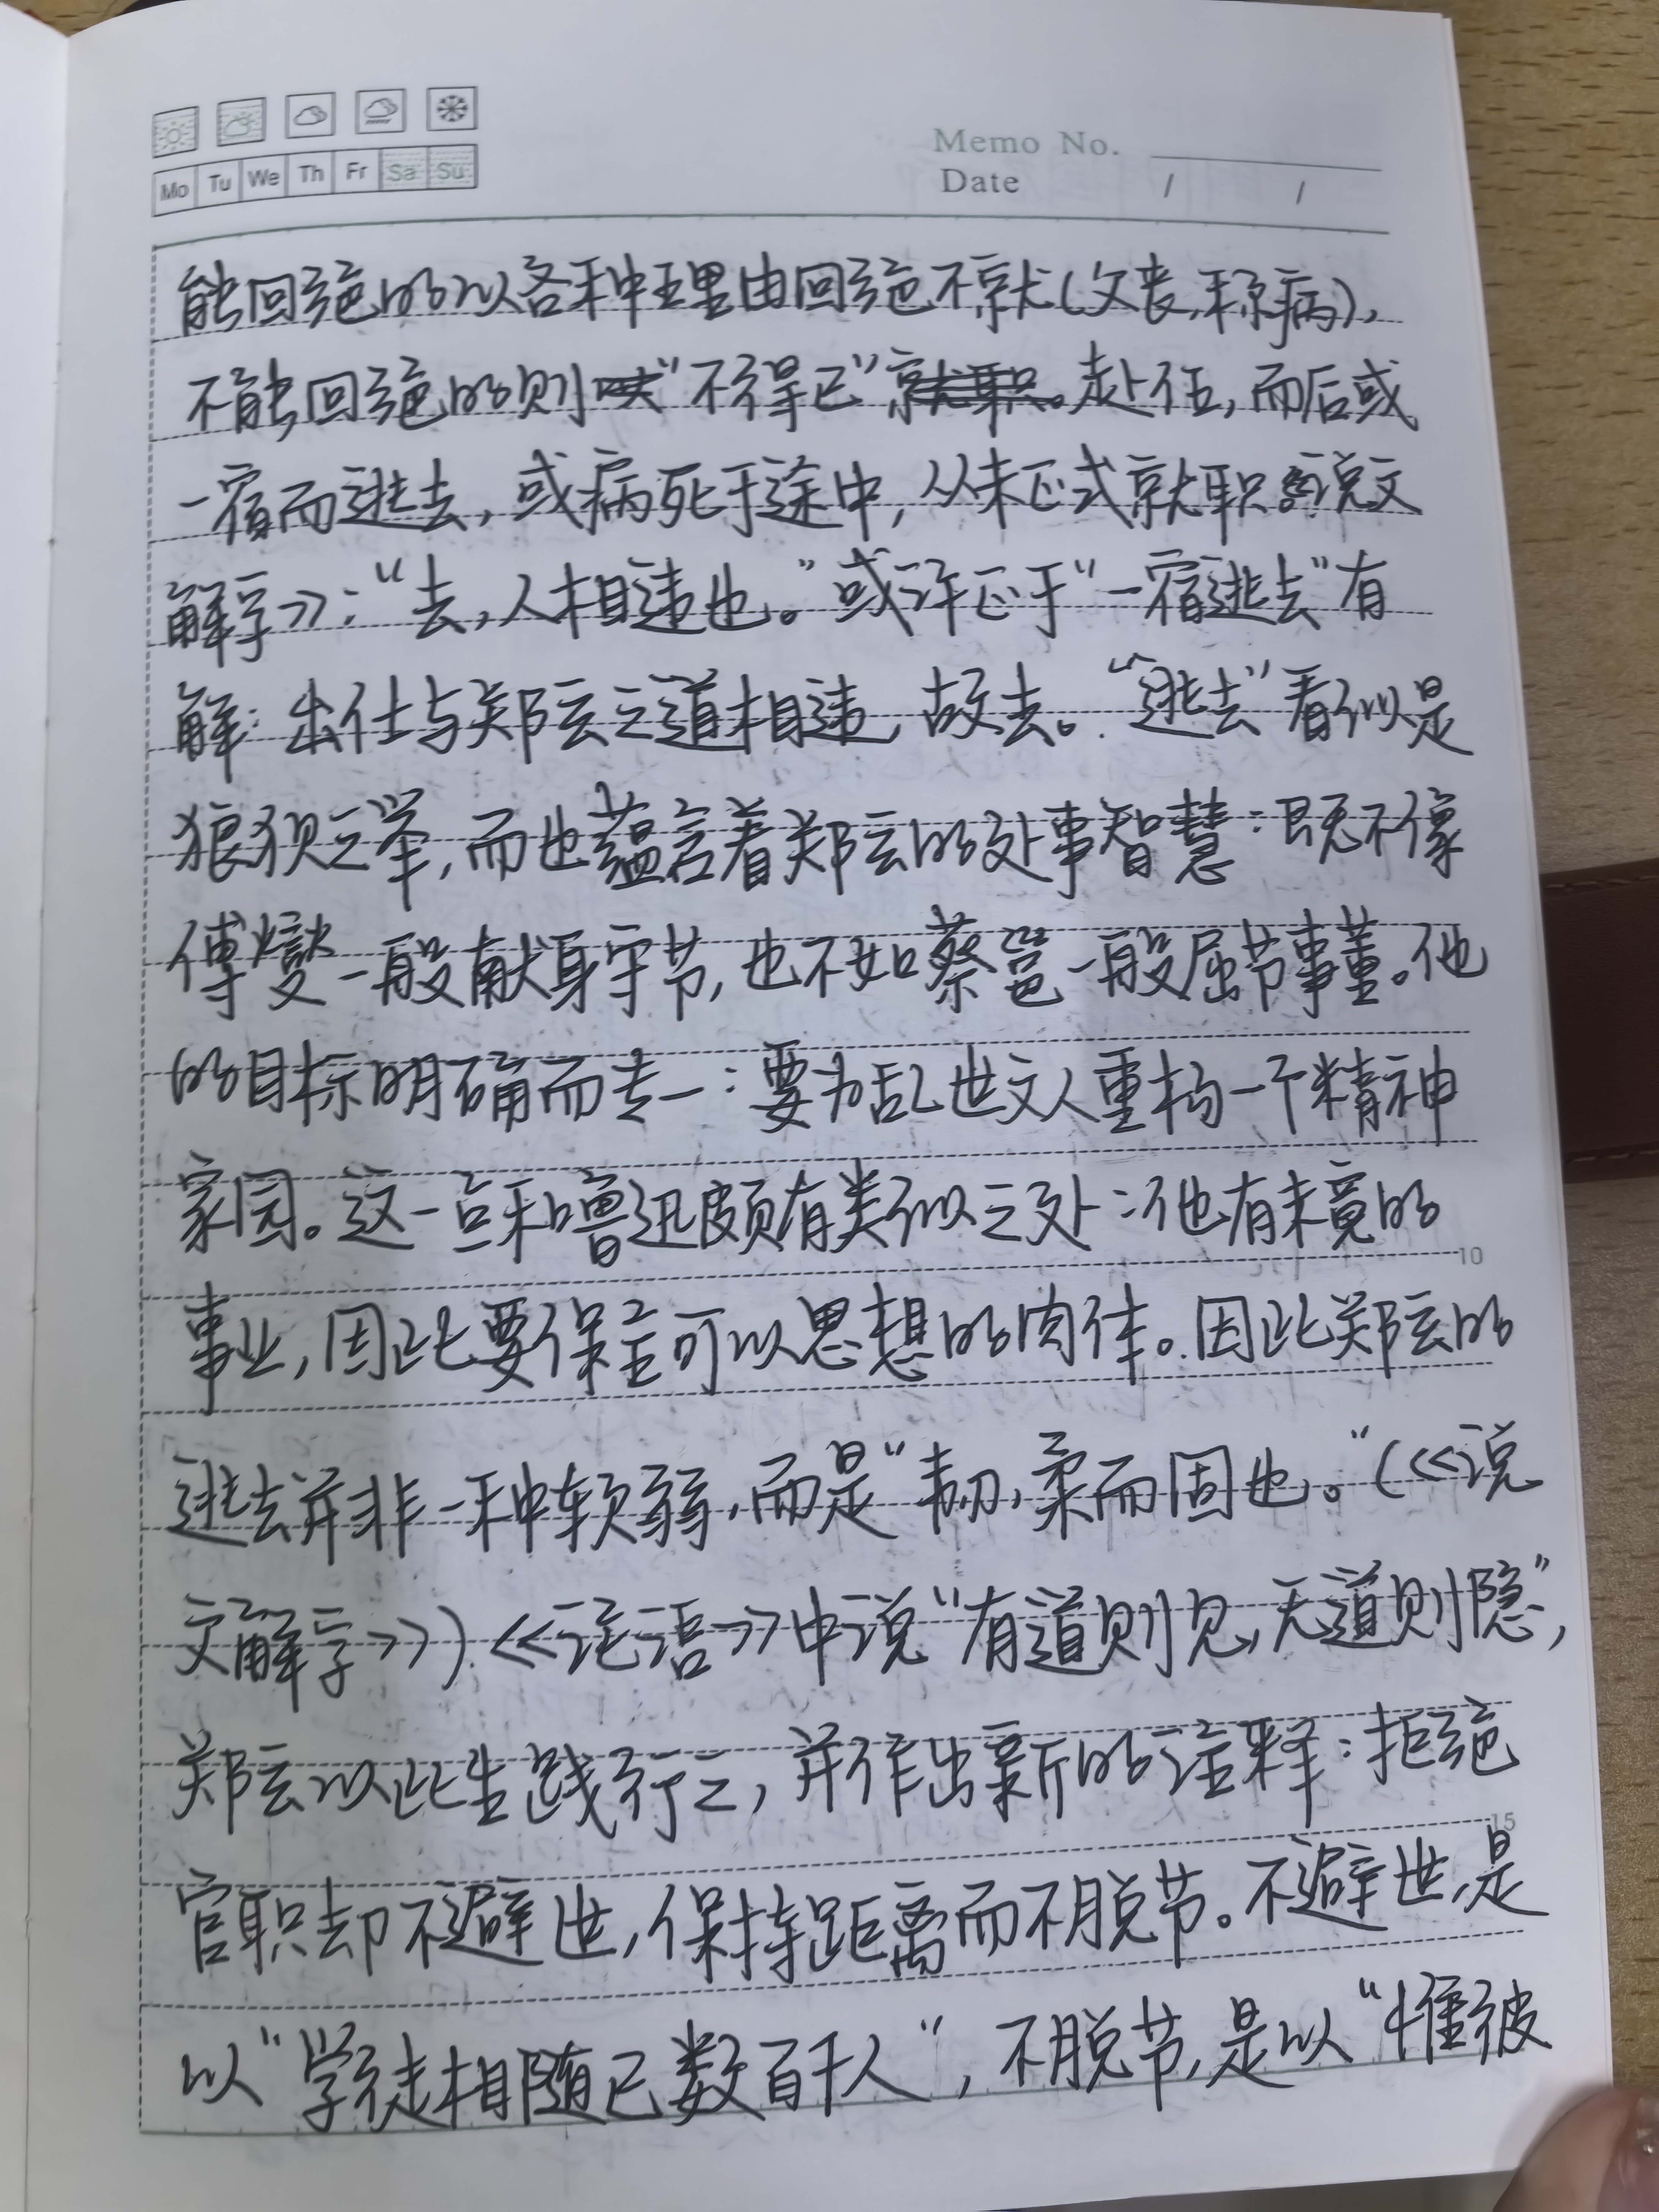 Memo No.
Mo Tu We Th Fr Sa Su
Date / /
能回绝的以各种理由回绝不就(父丧,称病),
不能回绝的则“不得已”赴任,而后或
一宿而逃去,或病死于途中,从未正式就职。《说文
解字》:“去,人相违也。”或许正于“一宿逃去”有
解:出仕与郑玄之道相违,故去。“逃去”看似是
狼狈之举,而也蕴含着郑玄的处事智慧:既不像
傅燮一般献身守节,也不如蔡邕一般屈节事董。他
的目标明确而专一:要为乱世文人重构一个精神
家园。这一点和鲁迅颇有类似之处:他有未竟的
10
事业,因此要保全可以思想的肉体。因此郑玄的
逃去并非一种软弱,而是“韧,柔而固也。”(《说
文解字》)《论语》中说“有道则见,无道则隐”,
郑玄以此生践行之,并作出新的注释:拒绝
15
官职却不避世,保持距离而不脱节。不避世,是
以“学徒相随已数百千人”,不脱节,是以“惟彼